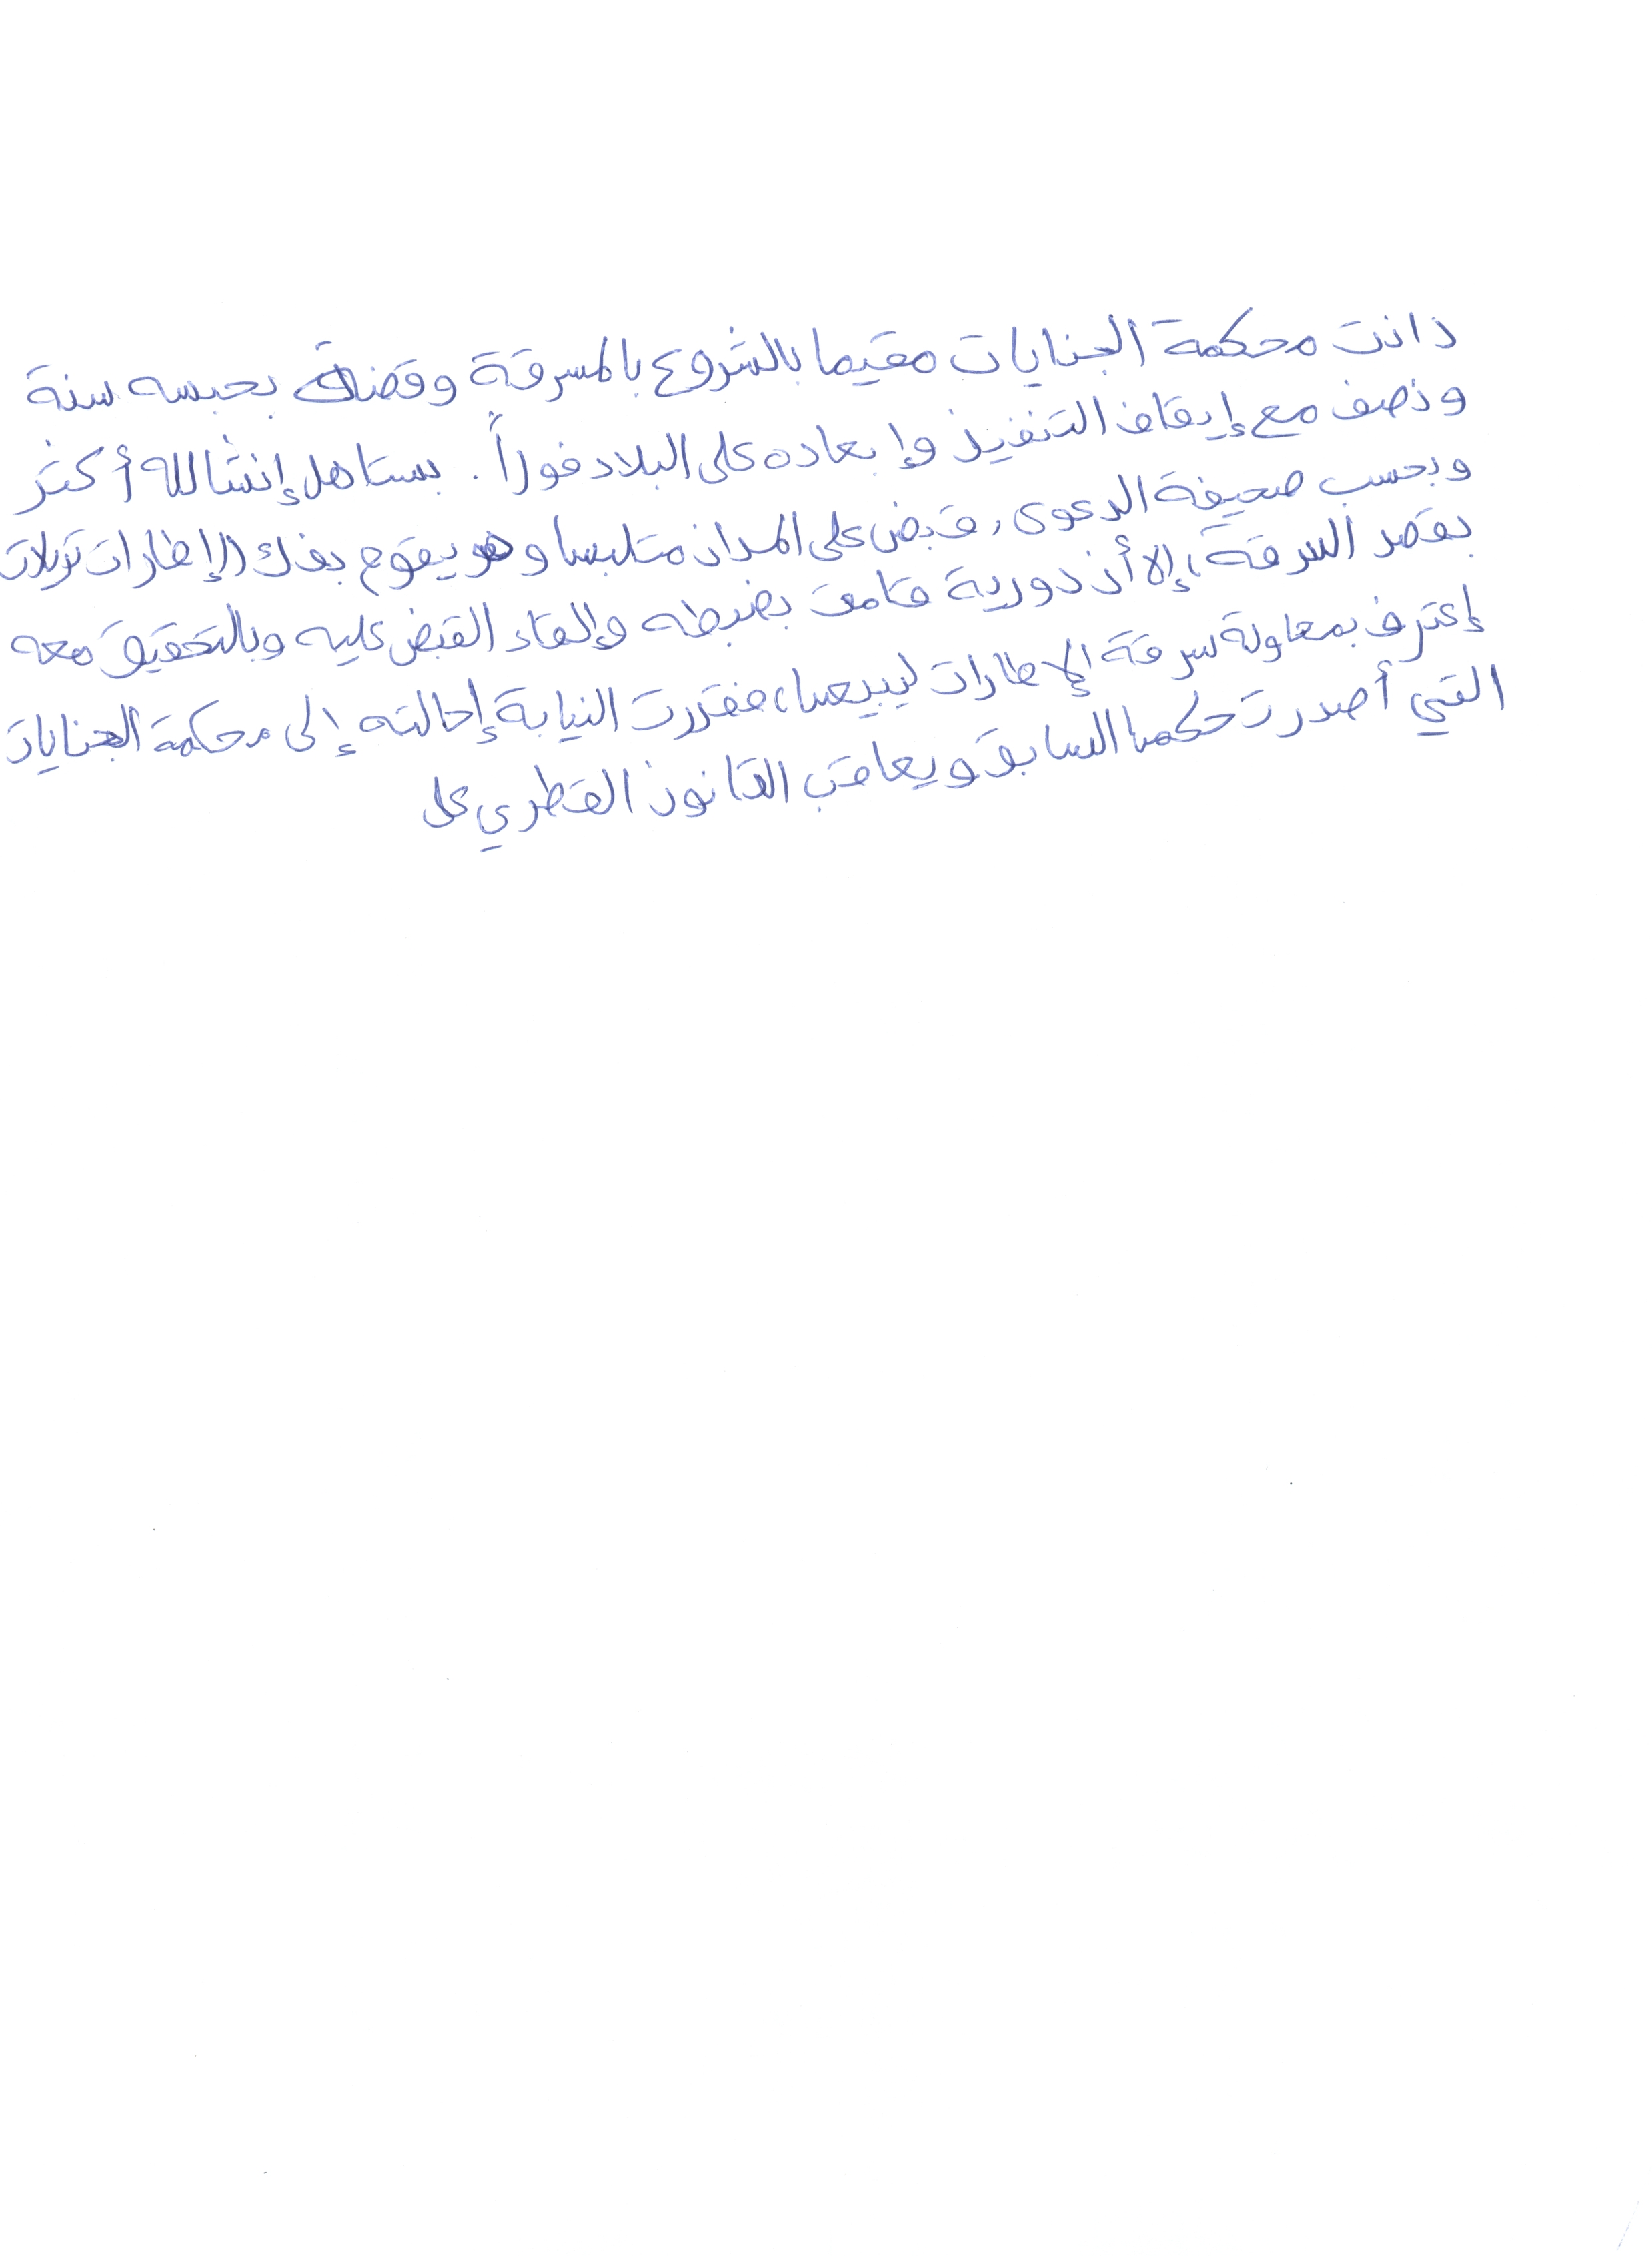 دانت محكمة الجنايات مقيما بالشروع بالسرقة وقضت بحبسه سنة
ونصف مع إيقاف التنفيذ وإبعاده على البلاد فوراً. بستاهل إنشالله أكثر
وبحسب صحيفة الدعوى، قبض على المدان متلبسا وهو يقوم بفك الإطارات تريلات
بقصد السرقة، إلا أن دورية قامت بضبطه وإلقاء القبض عليه وبالتحقيق معه
إعترف بمحاولة سرقة الإطارات ليبيعها، فقررت النيابة إحالته إلى محكمة الجنايات
التي أصدرت حكمها السابق ويعاقب القانون القطري على